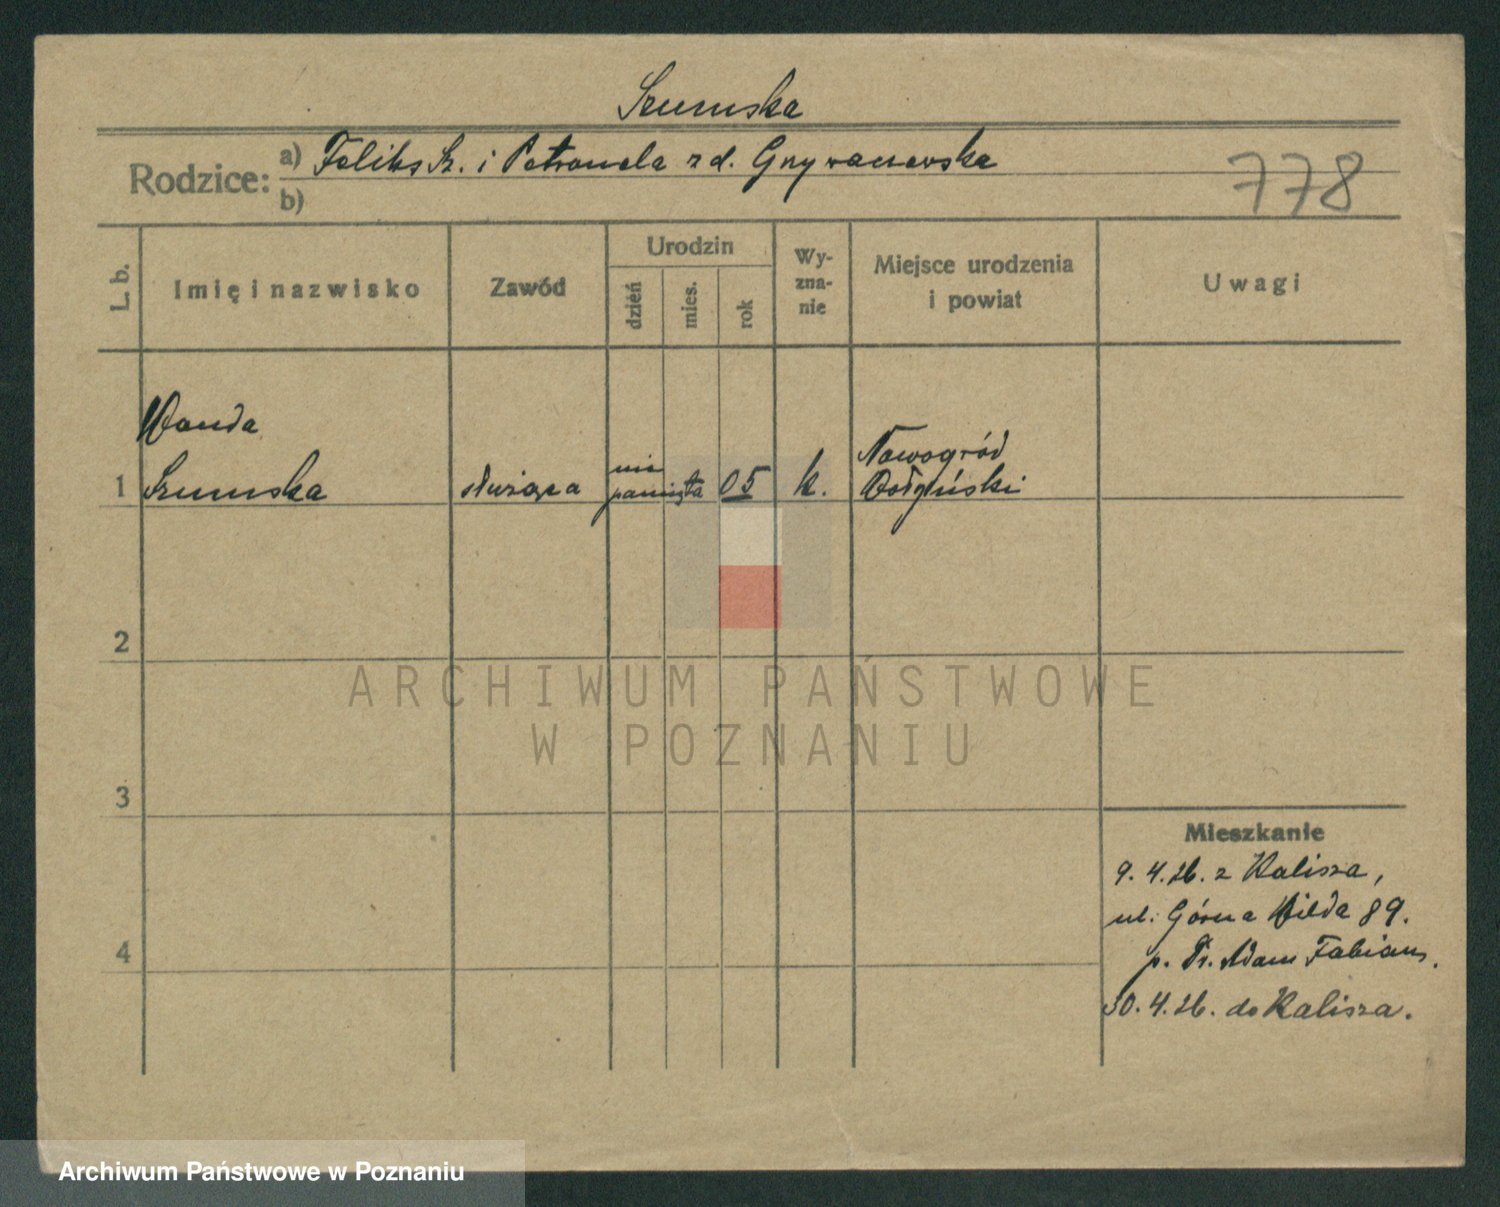 Szumska
Rodzice:
a) Feliks Sz. i Petronela z d.
b)
778
L. b.
Imię i nazwisko
Zawód
Urodzin
dzień
mies.
rok
Wy-
zna-
nie
Miejsce urodzenia
i powiat
Uwagi
Wanda
1 Szumska służąca nie pamięta 05 k. Nowogród
2
3
4
Mieszkanie
9.4.26. z Kalisza,
ul. Górna Wilda 89.
p. Adam Fabians.
30.4.26. do Kalisza.
ARCHIWUM PAŃSTWOWE
W POZNANIU
Archiwum Państwowe w Poznaniu